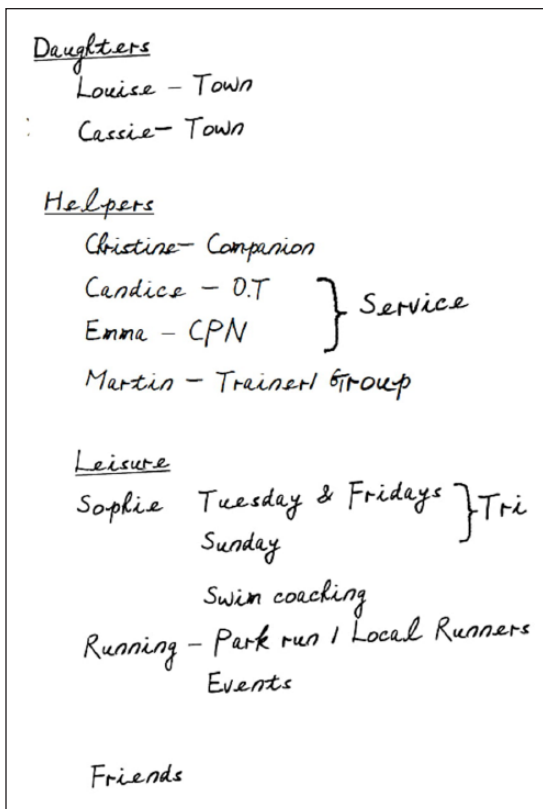 Daughters
Louise – Town
Cassie – Town
Helpers
Christine – Companion
Candice – O.T } Service
Emma – CPN
Martin – Trainer/ Group
Leisure
Sophie Tuesday & Fridays } Tri
Sunday
Swim coaching
Running – Park run / Local Runners
Events
Friends